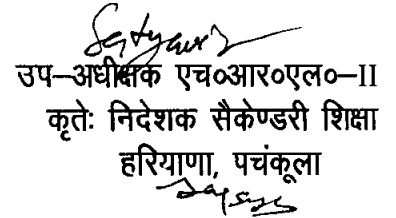 उप–अधीक्षक एच०आर०एल०–II
कृतेः निदेशक सैकेण्डरी शिक्षा
हरियाणा, पचंकूला